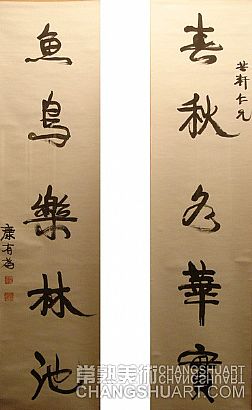 春秋多華實
軒仁兄
魚鳥樂林池
康有為
常熟美術 CHANGSHUART.COM
CHANGSHUART.COM